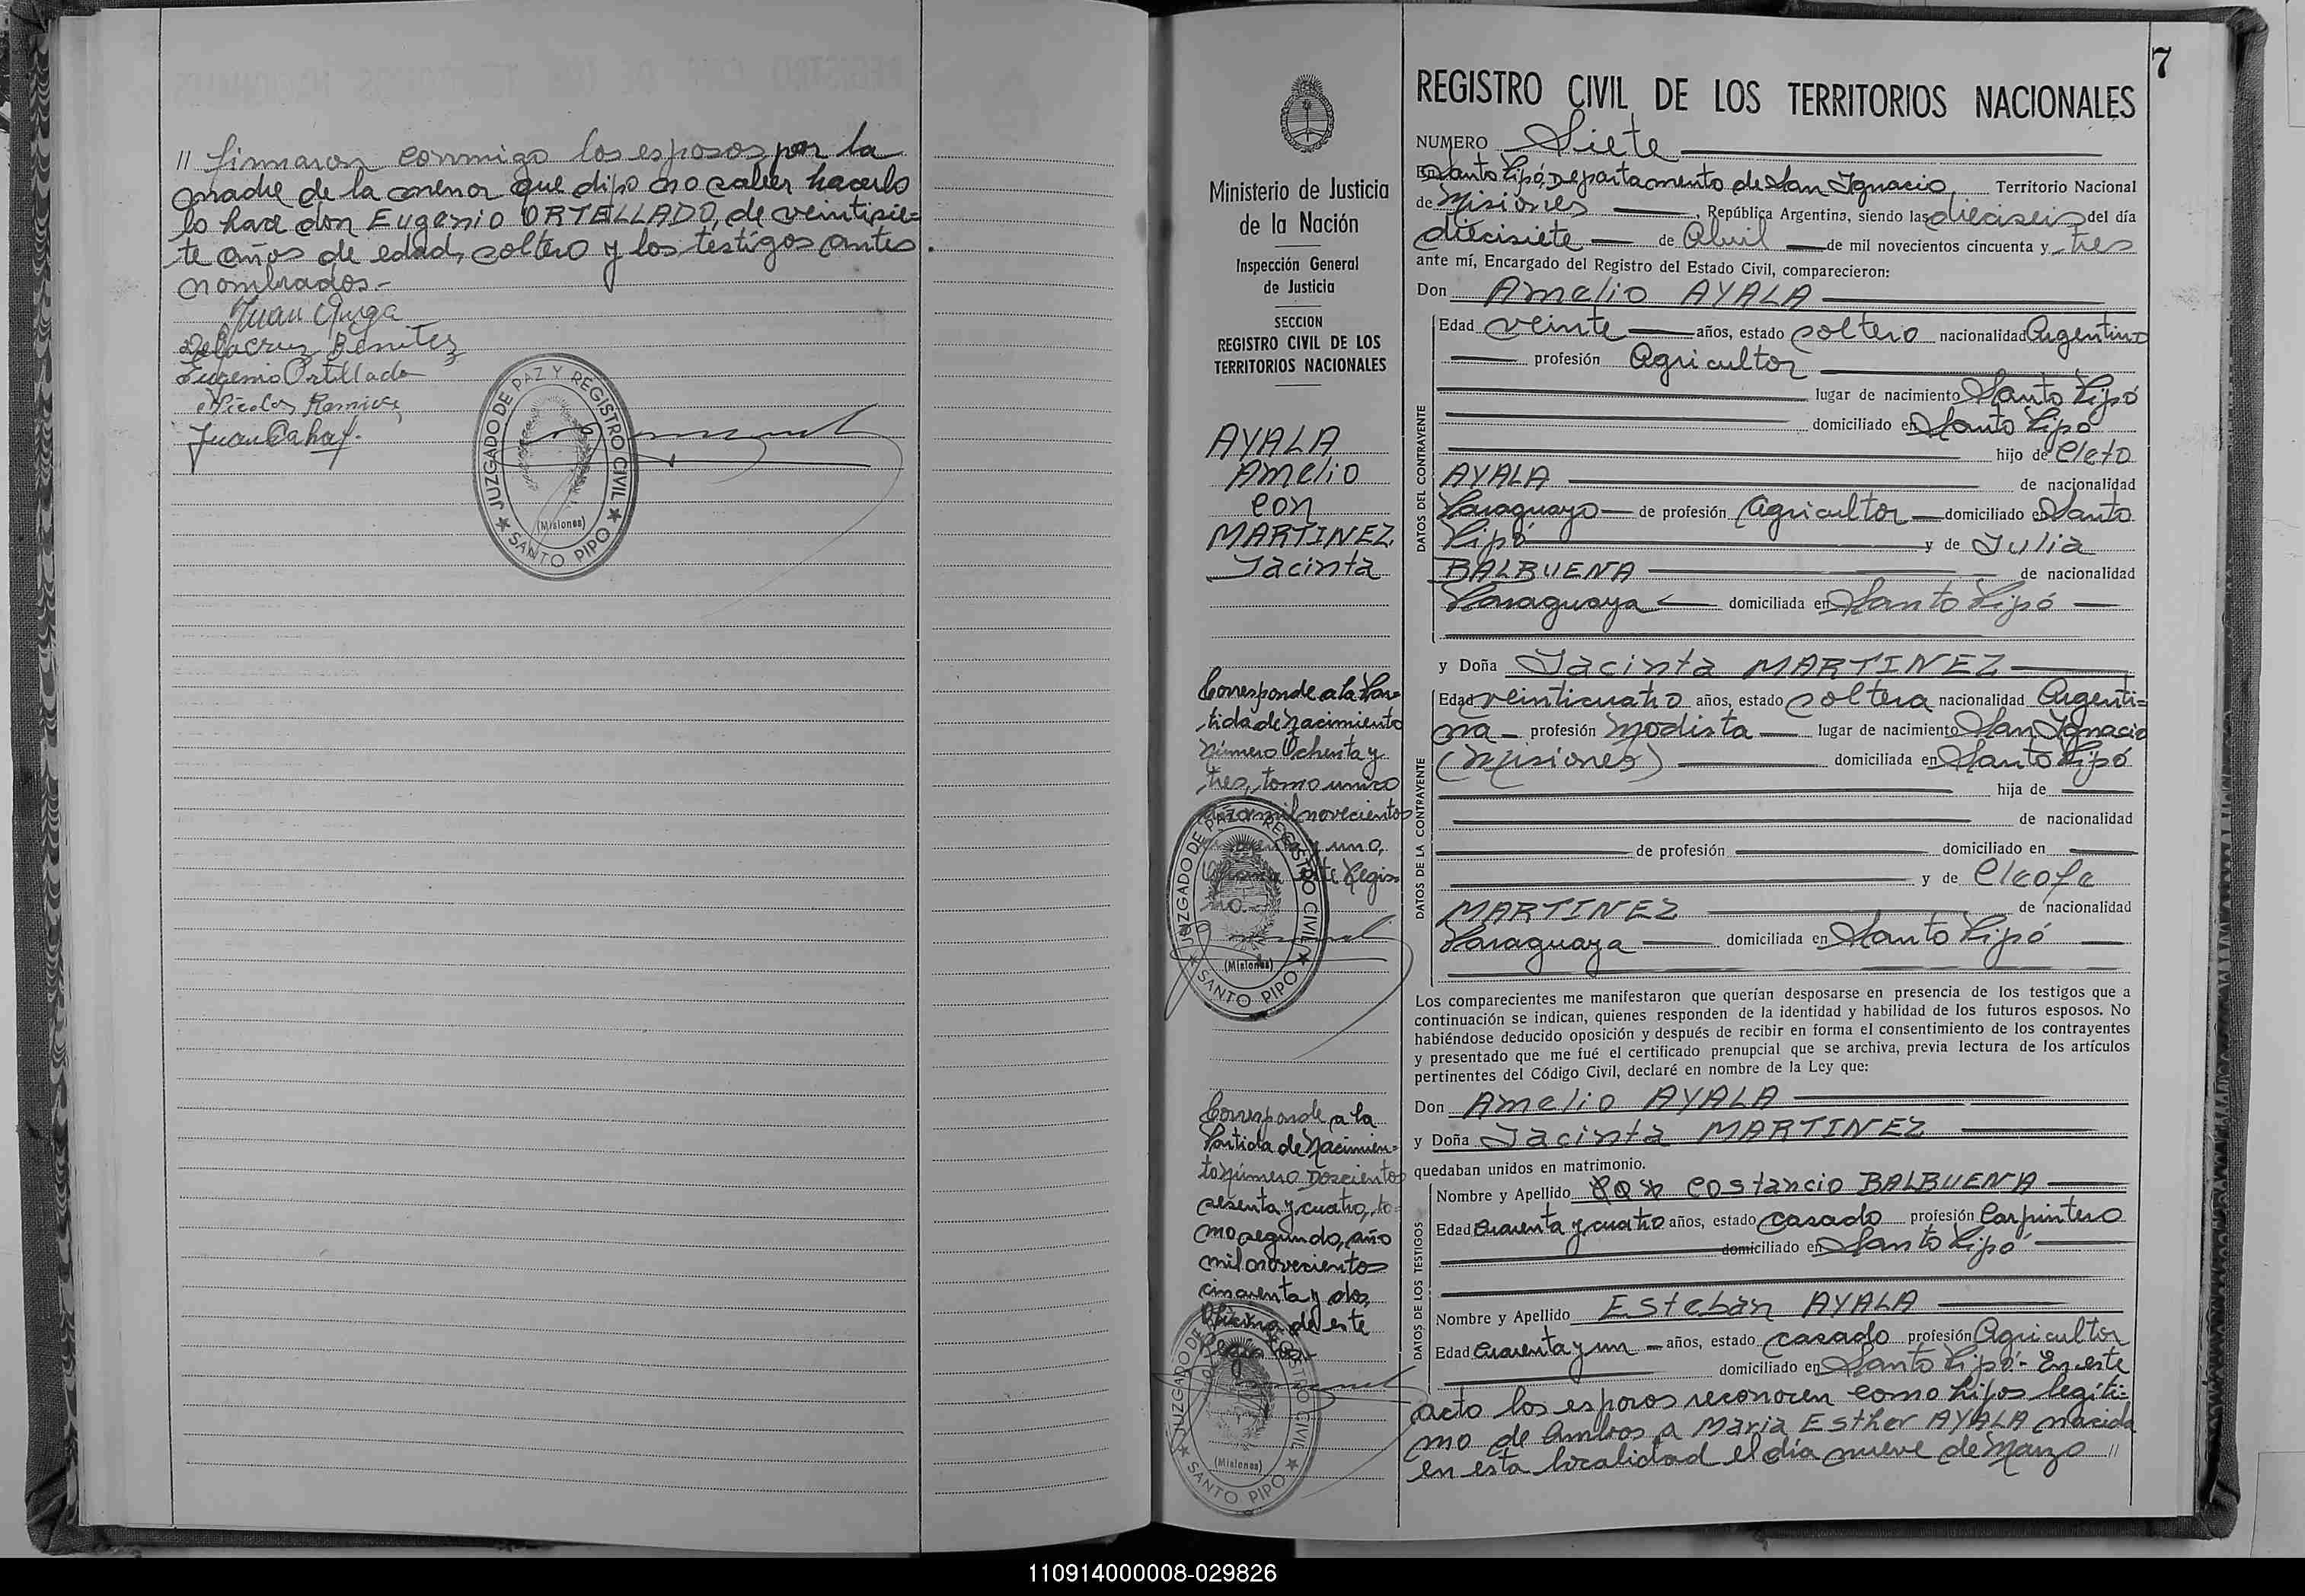 // firmaron conmigo los esposos, por la
madre de la menor que dijo no saber hacerlo
lo hace don Eugenio ORTELLADO, de veintisie=
te años de edad, soltero y los testigos antes
nombrados.-
Juan
Delacruz Benitez
Eugenio Ortellado
Nicolas Ramirez
Juan
JUZGADO DE PAZ Y REGISTRO CIVIL
(Misiones)
SANTO PIPO
7
Ministerio de Justicia
de la Nación
Inspección General
de Justicia
SECCION
REGISTRO CIVIL DE LOS
TERRITORIOS NACIONALES
AYALA
Amelio
con
MARTINEZ
Jacinta
Corresponde a la Par=
tida de Nacimiento
Número Ochenta y
tres, tomo unico
año mil novecientos
y uno,
este Regis=
tro.-
JUZGADO DE PAZ Y REGISTRO CIVIL
(Misiones)
SANTO PIPO
Corresponde a la
Partida de Nacimien=
to número Doscientos
sesenta y cuatro, to=
mo segundo, año
mil novecientos
cincuenta y dos,
de este
Registro.-
JUZGADO DE PAZ Y REGISTRO CIVIL
(Misiones)
SANTO PIPO
REGISTRO CIVIL DE LOS TERRITORIOS NACIONALES
NUMERO Siete
En Santo Pipó, Departamento de San Ignacio, Territorio Nacional
de Misiones, República Argentina, siendo las dieciseis del día
diecisiete de Abril de mil novecientos cincuenta y tres
ante mí, Encargado del Registro del Estado Civil, comparecieron:
Don Amelio AYALA
DATOS DEL CONTRAYENTE
Edad veinte años, estado soltero nacionalidad Argentino
profesión Agricultor
lugar de nacimiento Santo Pipó
domiciliado en Santo Pipó
hijo de Cleto
AYALA de nacionalidad
Paraguayo de profesión Agricultor domiciliado en Santo
Pipó y de Julia
BALBUENA de nacionalidad
Paraguaya domiciliada en Santo Pipó
y Doña Jacinta MARTINEZ
DATOS DE LA CONTRAYENTE
Edad veinticuatro años, estado soltera nacionalidad Argenti=
na profesión Modista lugar de nacimiento San Ignacio
(Misiones) domiciliada en Santo Pipó
hija de
de nacionalidad
de profesión domiciliado en
y de Cleofe
MARTINEZ de nacionalidad
Paraguaya domiciliada en Santo Pipó
Los comparecientes me manifestaron que querían desposarse en presencia de los testigos que a
continuación se indican, quienes responden de la identidad y habilidad de los futuros esposos. No
habiéndose deducido oposición y después de recibir en forma el consentimiento de los contrayentes
y presentado que me fué el certificado prenupcial que se archiva, previa lectura de los artículos
pertinentes del Código Civil, declaré en nombre de la Ley que:
Don Amelio AYALA
y Doña Jacinta MARTINEZ
quedaban unidos en matrimonio.
DATOS DE LOS TESTIGOS
Nombre y Apellido Costancio BALBUENA
Edad Cuarenta y cuatro años, estado casado profesión Carpintero
domiciliado en Santo Pipó
Nombre y Apellido Esteban AYALA
Edad Cuarenta y un años, estado casado profesión Agricultor
domiciliado en Santo Pipó.- En este
acto los esposos reconocen como hijos legíti=
mo de ambos a Maria Esther AYALA nacida
en esta localidad el día nueve de Marzo //
110914000008-029826